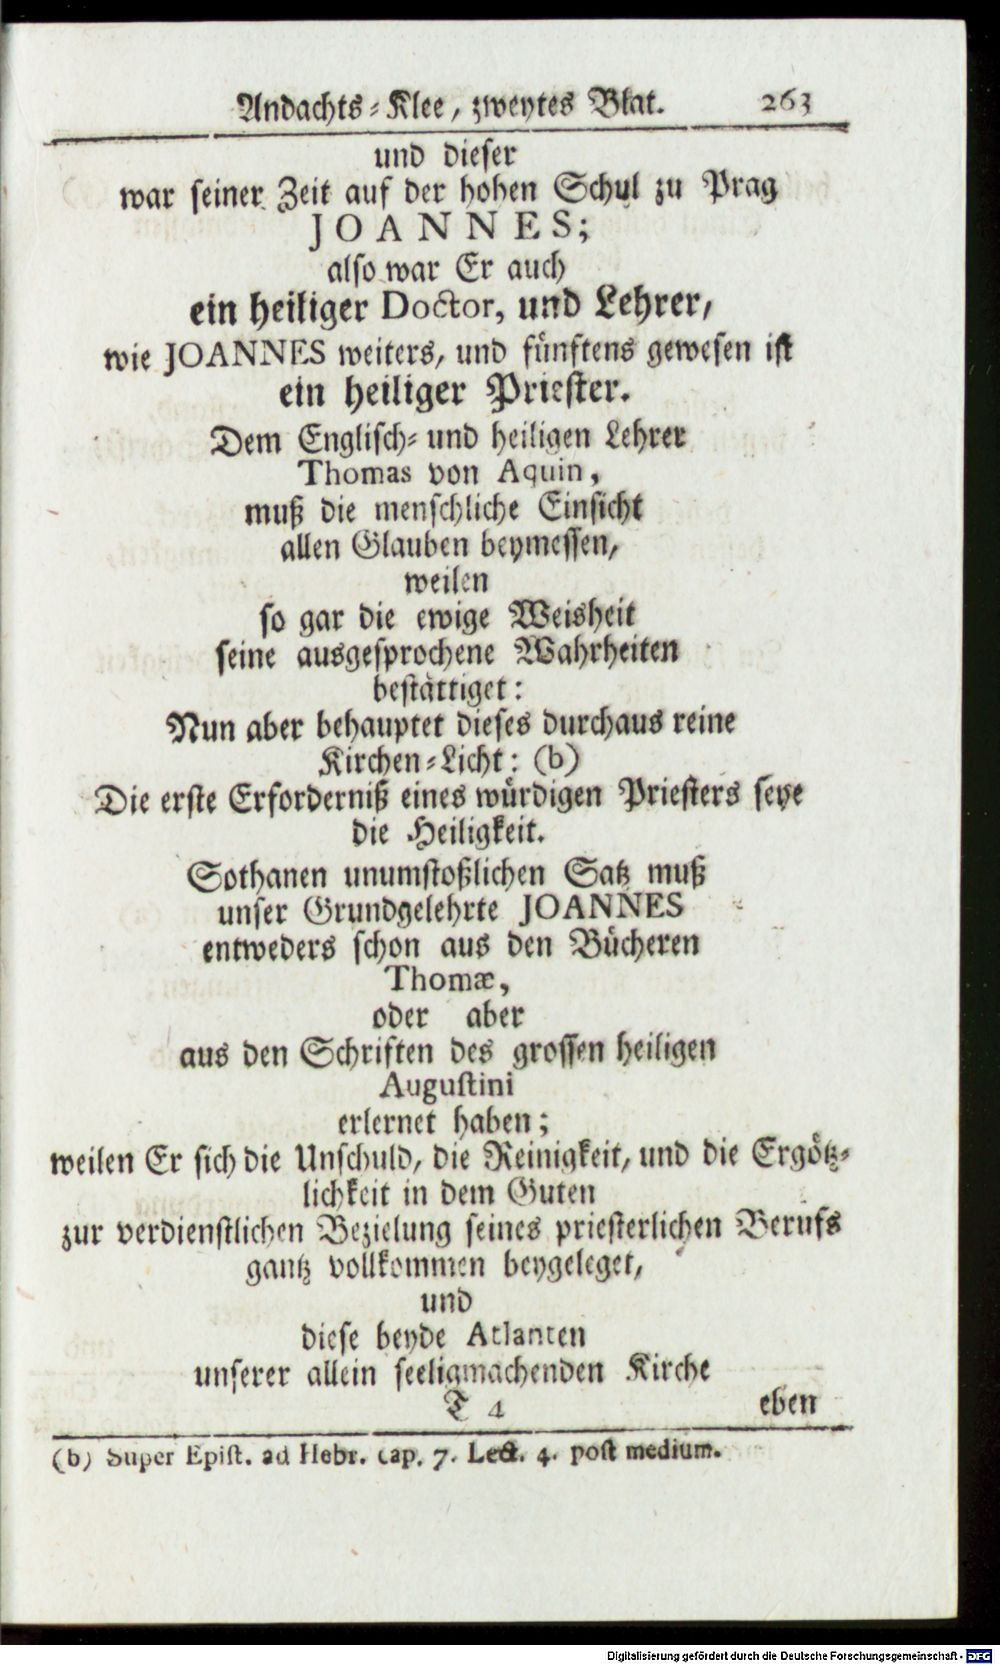 Andachts-Klee, zweytes Blat. 263
und dieser
war seiner Zeit auf der hohen Schul zu Prag
JOANNES;
also war Er auch
ein heiliger Doctor, und Lehrer,
wie JOANNES weiters, und fünftens gewesen ist
ein heiliger Priester.
Dem Englisch- und heiligen Lehrer
Thomas von Aquin,
muß die menschliche Einsicht
allen Glauben beymessen,
weilen
so gar die ewige Weisheit
seine ausgesprochene Wahrheiten
bestättiget:
Nun aber behauptet dieses durchaus reine
Kirchen-Licht: (b)
Die erste Erforderniß eines würdigen Priesters seye
die Heiligkeit.
Sothanen unumstoßlichen Satz muß
unser Grundgelehrte JOANNES
entweders schon aus den Bücheren
Thomæ,
oder aber
aus den Schriften des grossen heiligen
Augustini
erlernet haben;
weilen Er sich die Unschuld, die Reinigkeit, und die Ergötz-
lichkeit in dem Guten
zur verdienstlichen Bezielung seines priesterlichen Berufs
gantz vollkommen beygeleget,
und
diese beyde Atlanten
unserer allein seeligmachenden Kirche
T 4 eben
(b) Super Epist. ad Hebr. cap. 7. Lect. 4. post medium.
Digitalisierung gefördert durch die Deutsche Forschungsgemeinschaft - DFG